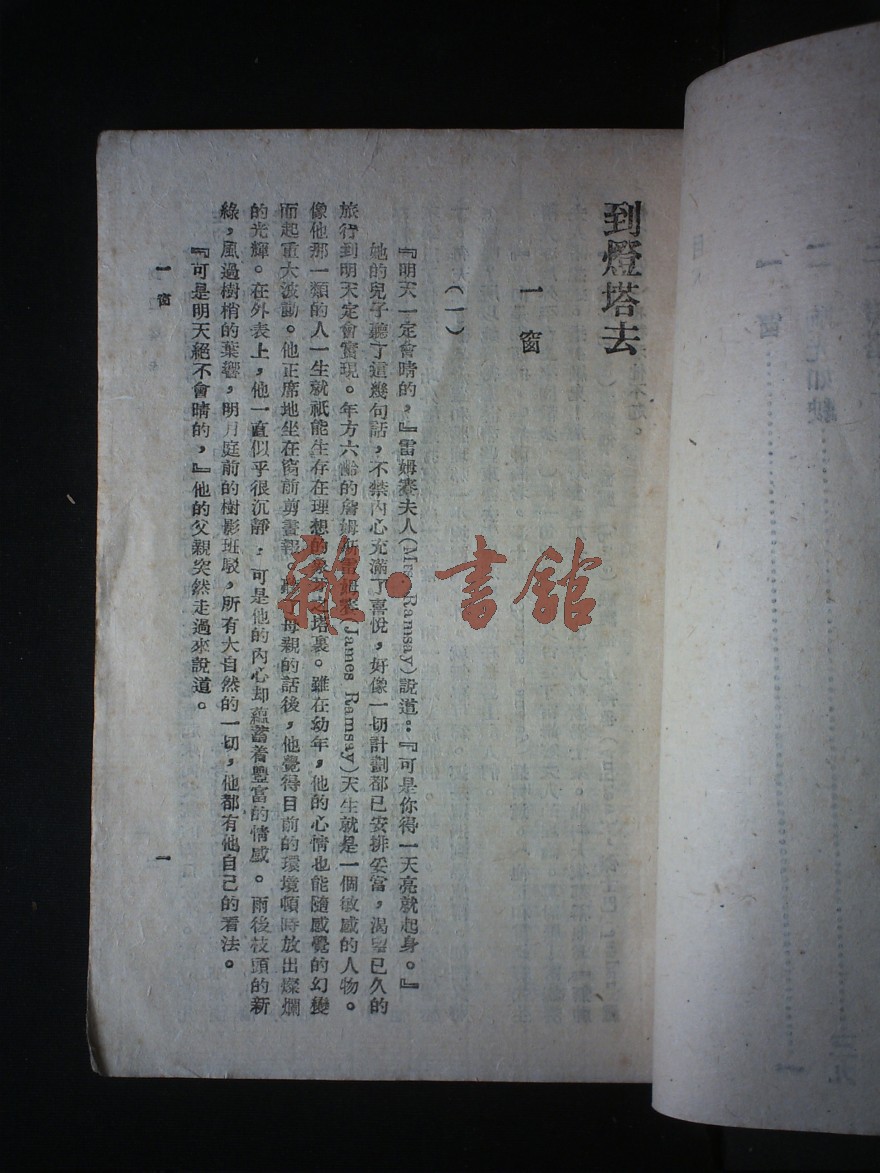 到燈塔去
一 窗
(一)
『明天一定會晴的，』雷姆賽夫人(Mrs. Ramsay)說道：『可是你得一天亮就起身。』
她的兒子聽了這幾句話，不禁內心充滿了喜悅，好像一切計劃都已安排妥當，渴望已久的
旅行到明天定會實現。年方六齡的詹姆斯雷姆賽(James Ramsay)天生就是一個敏感的人物。
像他那一類的人一生就祇能生存在理想的之塔裏。雖在幼年，他的心情也能隨感覺的幻變
而起重大波動。他正席地坐在窗前剪畫報，聽了母親的話後，他覺得目前的環境頓時放出燦爛
的光輝。在外表上，他一直似乎很沉靜，可是他的內心却蘊蓄着豐富的情感。雨後枝頭的新
綠，風過樹梢的葉響，明月庭前的樹影班駁，所有大自然的一切，他都有他自己的看法。
『可是明天絕不會晴的，』他的父親突然走過來說道。
一 窗
一
雜·書館